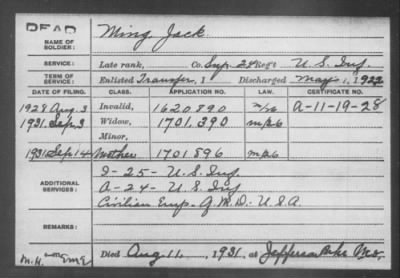 DEAD
NAME OF SOLDIER: Ming, Jack
SERVICE: Late rank, Co. Sup. 28 Regt U.S. Inf.
TERM OF SERVICE: Enlisted Transfer, 1 Discharged May, 1922
DATE OF FILING. CLASS. APPLICATION NO. LAW. CERTIFICATE NO.
1928 Aug. 3 Invalid, 1620890 A-11-19-28
1931 Sep. 3 Widow, 1701.390
Minor,
1931 Sep 14 Mother 1701896
ADDITIONAL SERVICES: I-25-U.S. Inf
A-24-U.S. Inf
Civilian Emp-Q.M.D.-U.S.A.
REMARKS:
M.H. EME Died Aug. 11, 1931, at Jefferson Bks Mo.